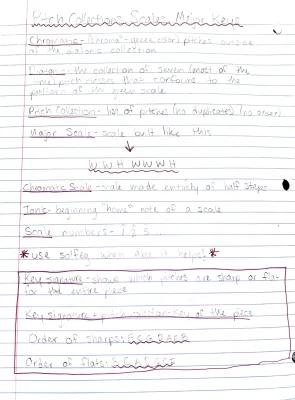 Pitch Collections, Scales, Major Keys
Chromatic - ("chroma" - color) pitches outside
of the diatonic collection
Diatonic - the collection of seven (most of the
time) pitch-classes that conforms to the
pattern of the given scale
Pitch Collection - list of pitches (no duplicates) (no order)
Major Scale - scale built like this
W W H W W W H
Chromatic Scale - scale made entirely of half steps
Tonic - beginning "home" note of a scale
Scale numbers - 1 2 3 ...
*use solfeg when also it helps!*
Key Signature - shows which pitches are sharp or fla-
for the entire piece
Key signature + pitch = Key of the piece
Order of sharps: F C G D A E B
Order of flats: B E A D G C F